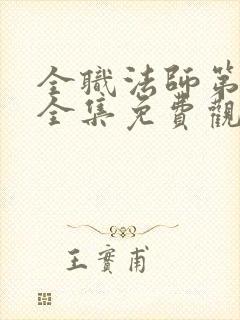 全職法師第
全集免費觀
王實甫